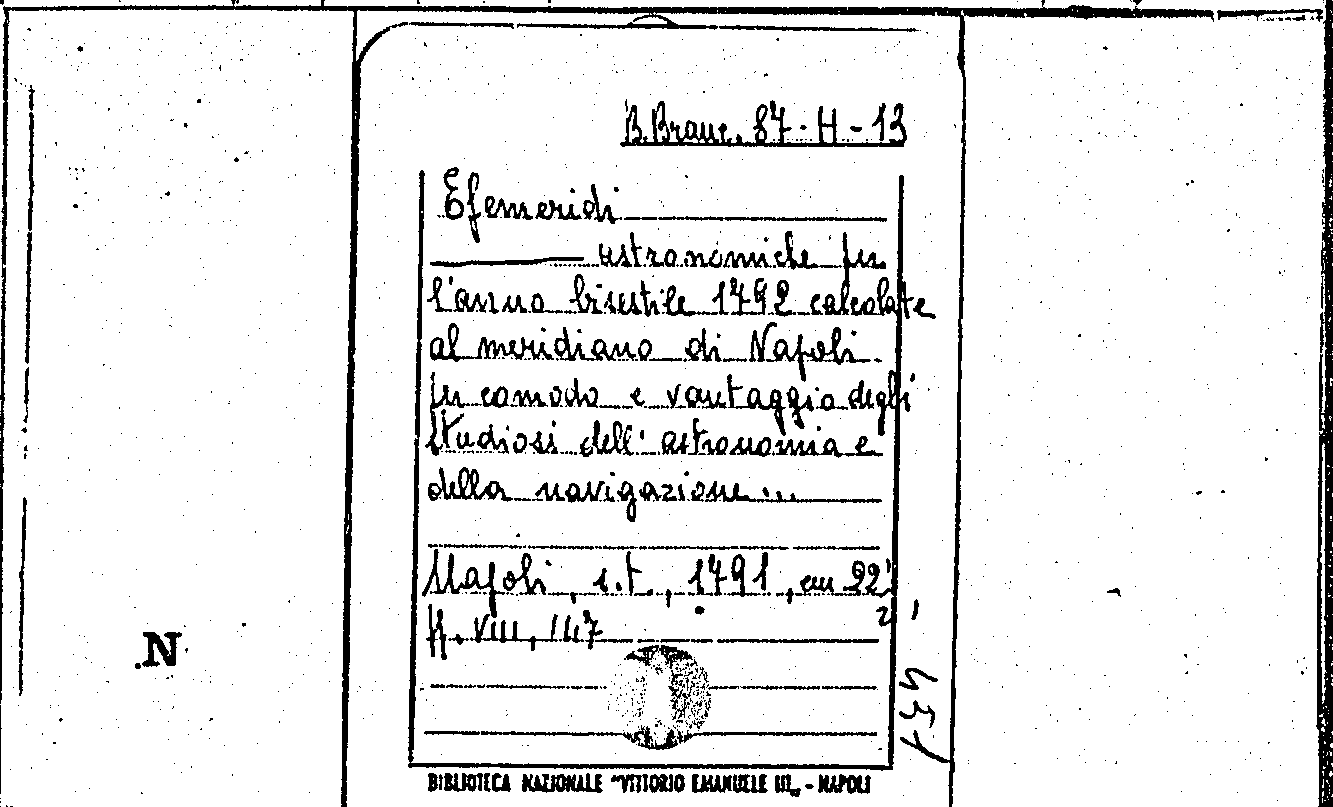 B. Branc. 87-H-13
Efemeridi
astronomiche per
l'anno bisestile 1792 calcolate
al meridiano di Napoli
per comodo e vantaggio degli
studiosi dell'astronomia e
della navigazione...
Napoli, s.t., 1791, cm 22
pp. VIII, 147
N
BIBLIOTECA NAZIONALE "VITTORIO EMANUELE III" - NAPOLI